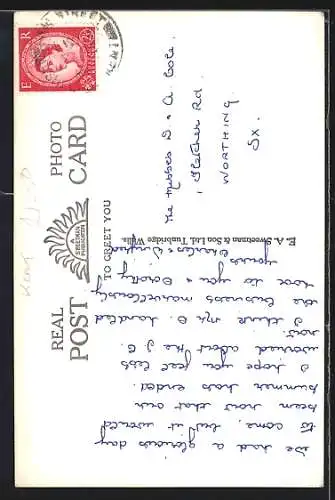 REAL PHOTO
POST CARD
TO GREET YOU
SWEETMAN
E. A. Sweetman & Son Ltd., Tunbridge Wells.
E R
STREET
KENT
We had a glorious day
to come, but it would
been now that our
summer has ended.
I hope you feel less
worried about the J.G.
now.
I think Mr. O. handled
the business marvellously
love to you & Dorothy
yours
Charles &
The Misses D & A. Cole.
1 Fletcher Rd
WORTHING
Sx.